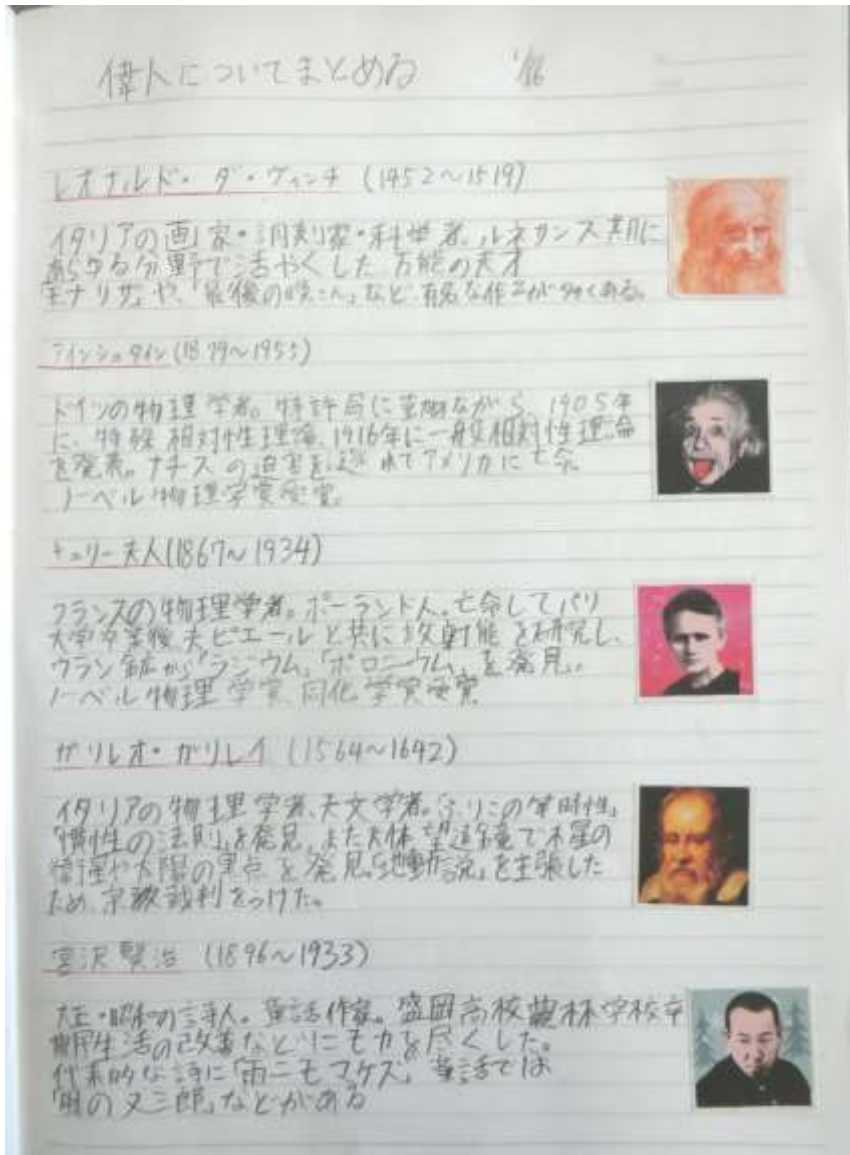 偉人についてまとめる 1/16
レオナルド・ダ・ヴィンチ (1452~1519)
イタリアの画家・彫刻家・科学者。ルネサンス期に
あらゆる分野で活やくした万能の天才
モナリザ」や、「最後の晩さん」など、有名な作品が多くある。
アインシュタイン(1879~1955)
ドイツの物理学者。特許局に勤めながら、1905年
に、特殊相対性理論、1916年に一般相対性理論
を発表。ナチスの迫害を逃れてアメリカに亡命
ノーベル物理学賞受賞。
キュリー夫人(1867~1934)
フランスの物理学者。ポーランド人。亡命してパリ
大学卒業後夫ピエールと共に放射能を研究し、
ウラン鉱から「ラジウム」「ポロニウム」を発見。
ノーベル物理学賞、同化学賞受賞
ガリレオ・ガリレイ (1564~1642)
イタリアの物理学者、天文学者。「ふりこの等時性」
「慣性の法則」を発見。また天体望遠鏡で木星の
衛星や太陽の黒点を発見。「地動説」を主張した
ため、宗教裁判をうけた。
宮沢賢治 (1896~1933)
大正・昭和の詩人。童話作家。盛岡高校農林学校卒
農民生活の改善などにも力を尽くした。
代表的な詩に「雨ニモマケズ」童話では
「風の又三郎」などがある